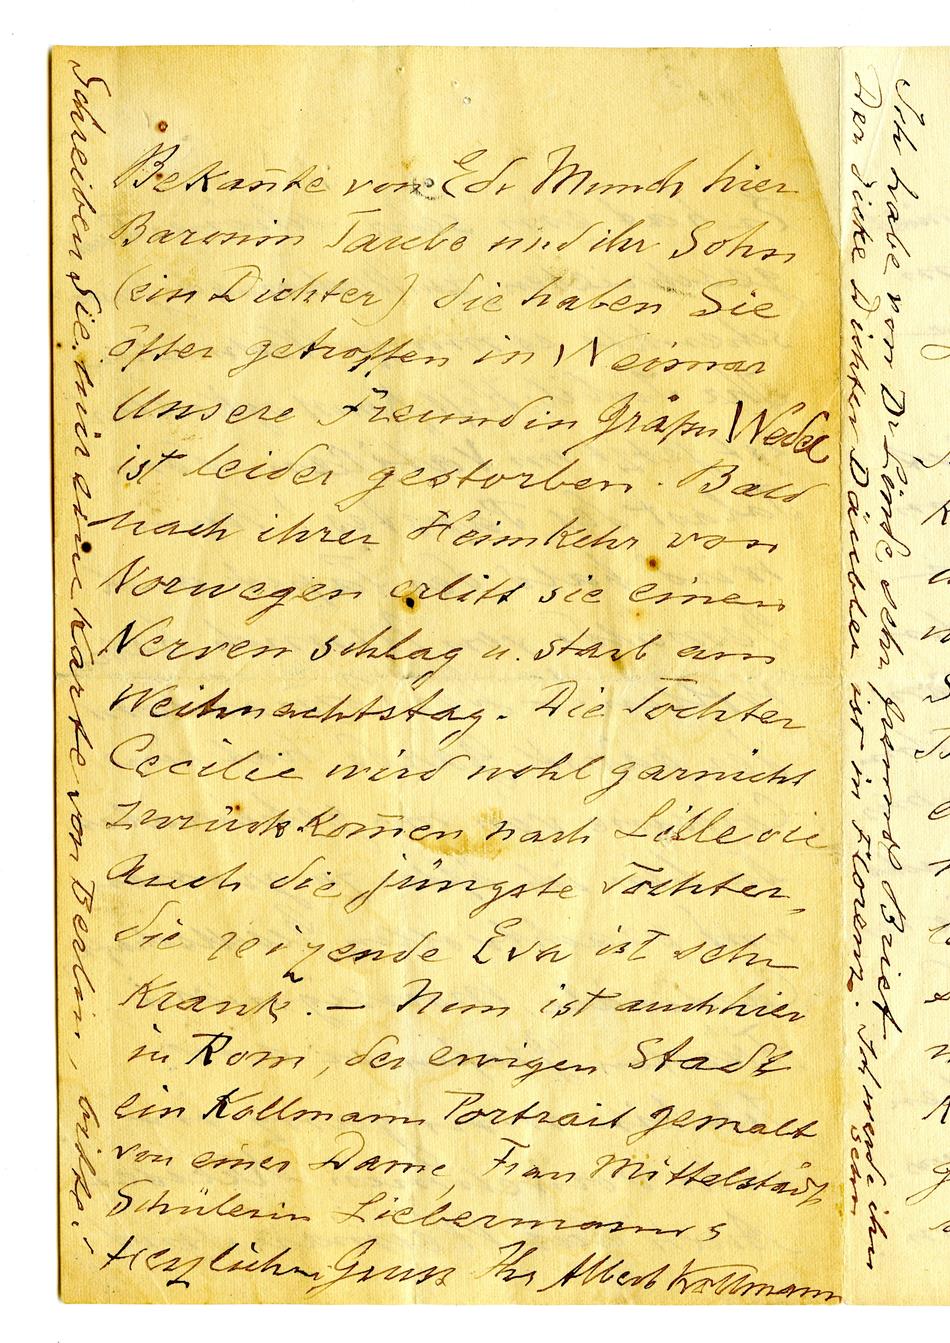 Bekan̄te von Ed. Munch hier
Baronin Taube und ihr Sohn
(ein Dichter) die haben Sie
öfter getroffen in Weimar
Unsere Freundin Gräfin Wedel
ist leider gestorben. Bald
nach ihrer Heimkehr von
Norwegen erlitt sie einen
Nervenschlag u. starb am
Weihnachtstag. Die Tochter
Cecilie wird wohl garnicht
zurückkom̄en nach
auch die jüngste Tochter,
die reizende Eva ist sehr
Krank. — Nun ist auch hier
in Rom, der ewigen Stadt
ein Kollmann Portrait gemalt
von einer Dame, Frau Mittelstädt
Schülerin Liebermanns
Herzlichen Gruss Ihr Albert Kollmann
Schreiben Sie mir eine Karte von Berlin, bitte!
Ich habe von Dr Linde sehr Brief
Der dicke Dichter Däubler ist in Florenz. Ich werde ihn
sehen